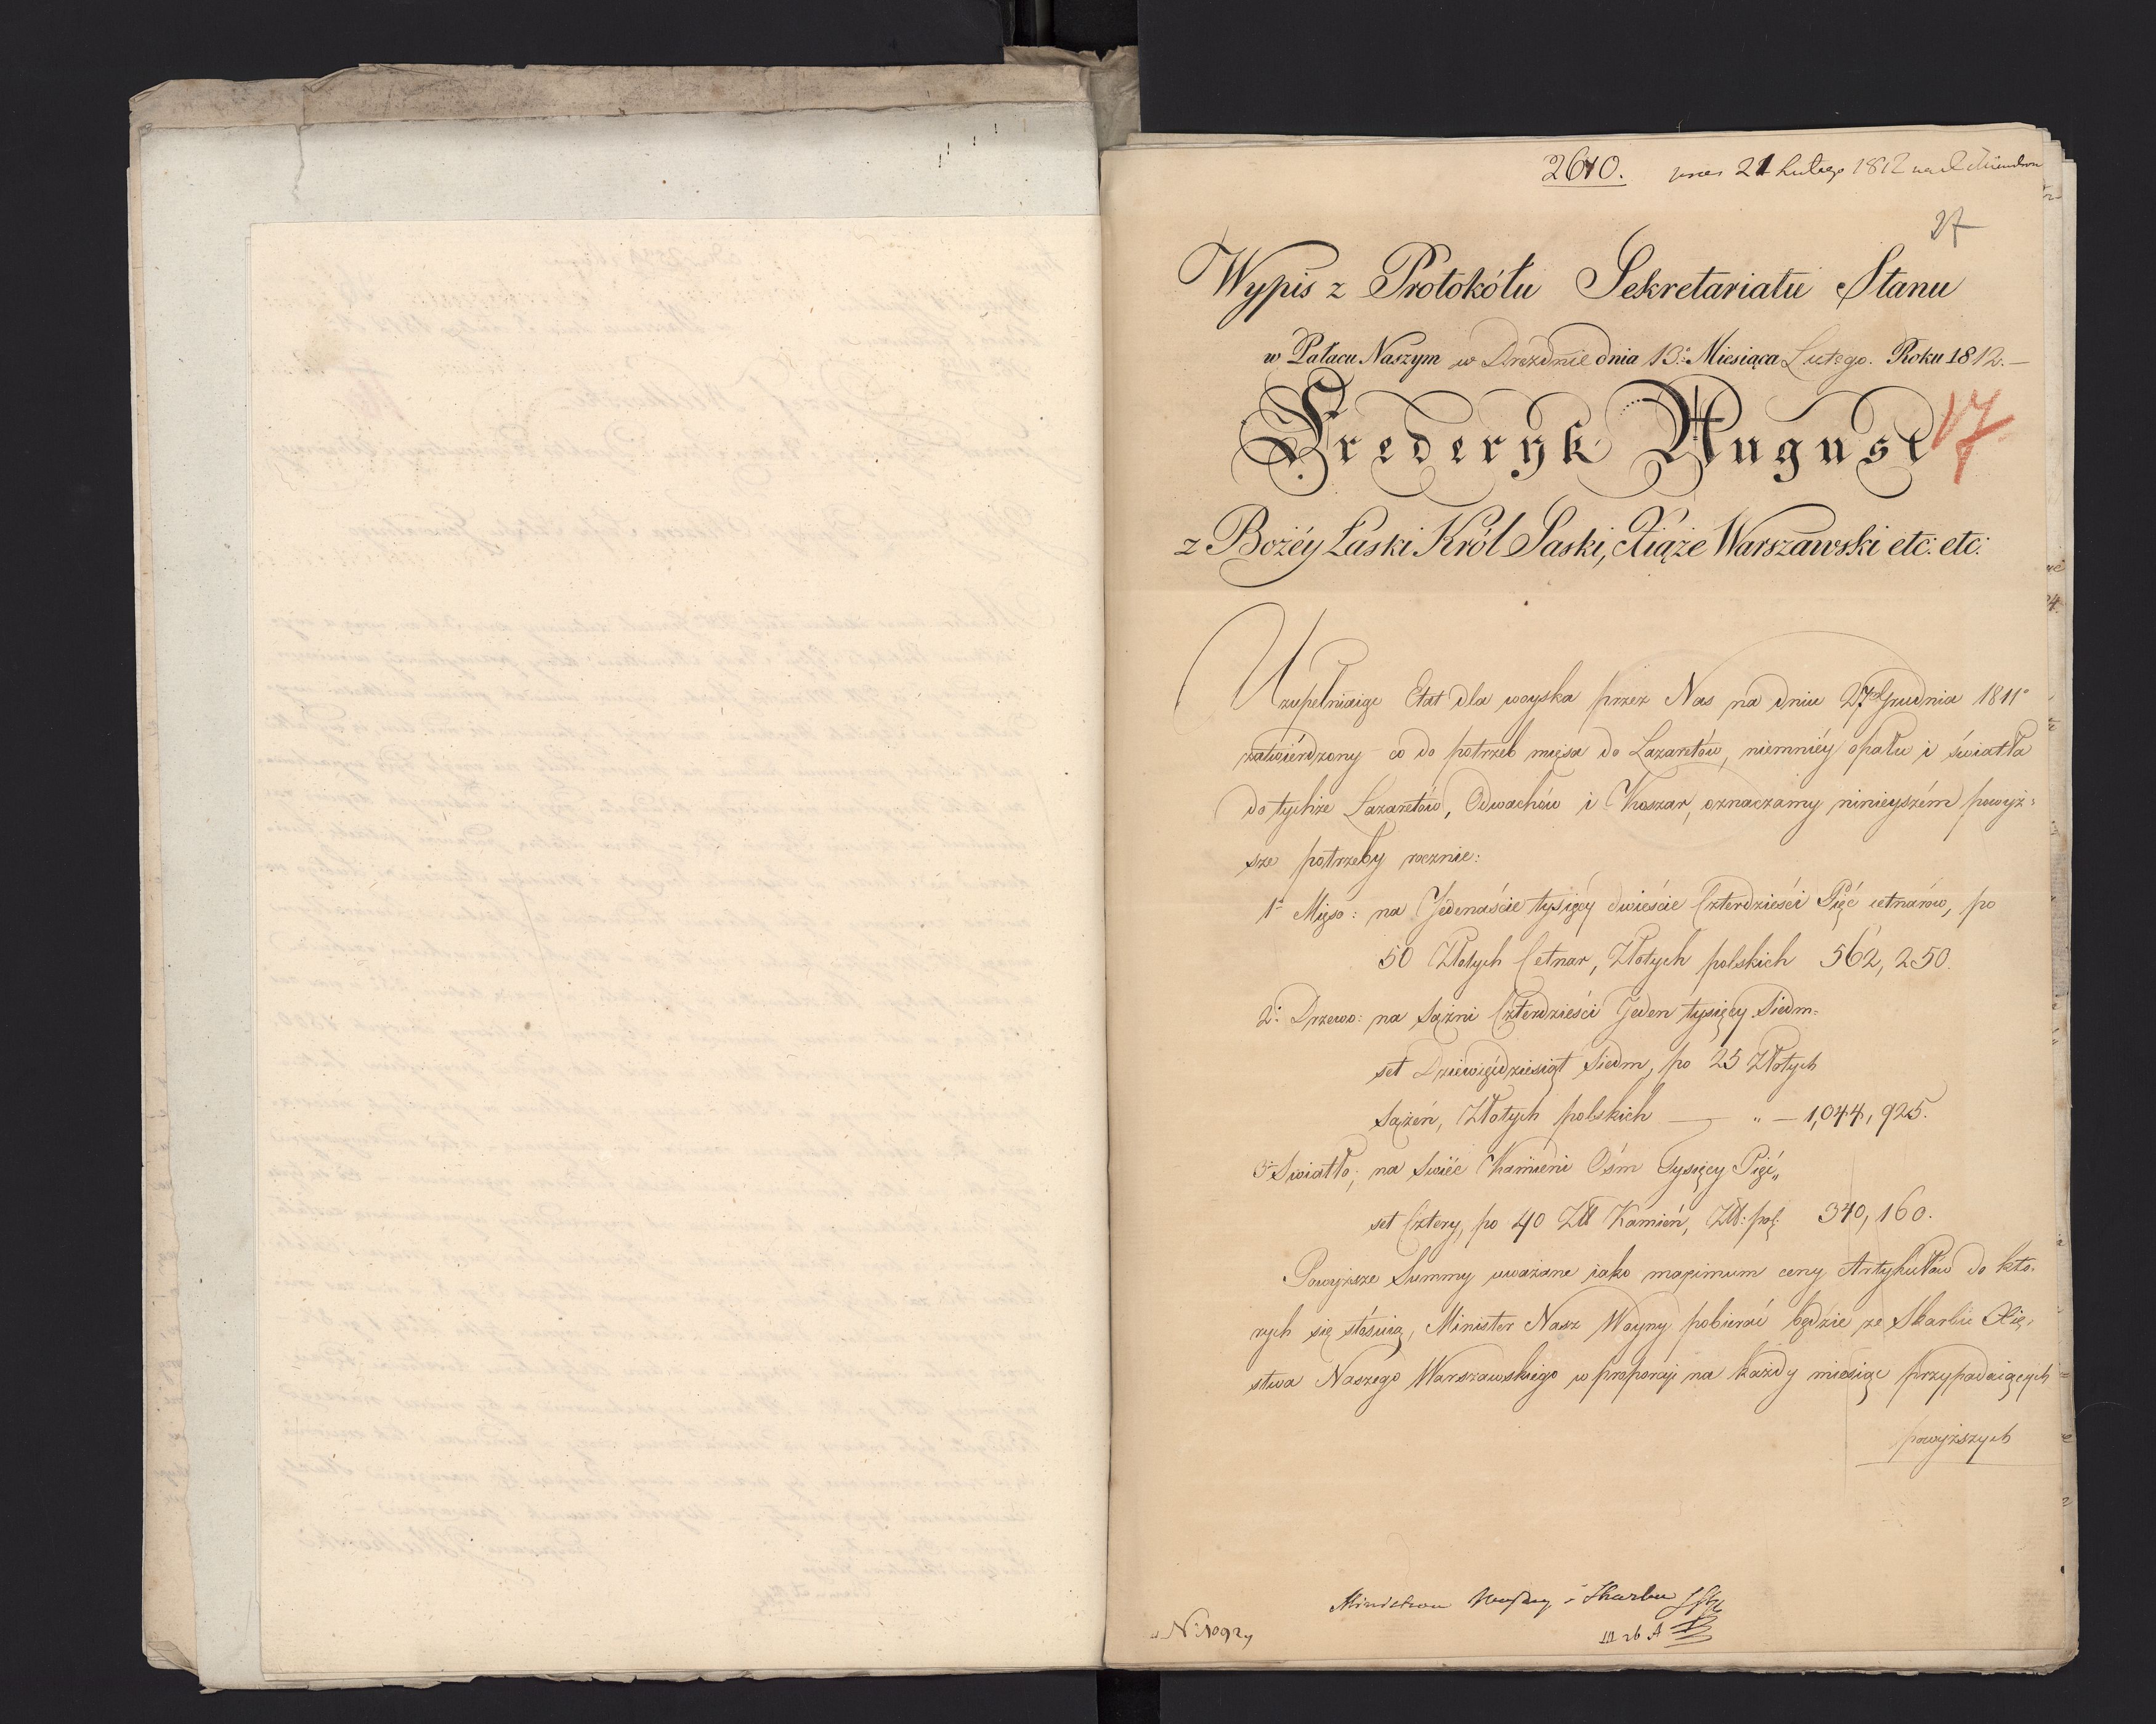 2610. 21 Lutego 1812
27
Wypis z Protokółu Sekretariatu Stanu
w Pałacu Naszym w Dreźdnie dnia 13.º Miesiąca Lutego. Roku 1812.—
Fryderyk August
17
z Bożéy Łaski Król Saski, Xiąże Warszawski etc: etc:
Uzupełniaiąc Etat dla woyska przez Nas na dniu 27º Grudnia 1811º
zatwiérdzony co do potrzeb mięsa do Lazaretów, niemniéy opału i światła
do tychże Lazaretów, Odwachów i Koszar, oznaczamy ninieyszém powyż=
sze potrzeby rocznie:
1º Mięso: na Jedenaście tysięcy dwieście Czterdzieści Pięć cetnarów, po
50 Złotych Cetnar, Złotych polskich 562,250.
2º Drzewo: na Sążni Czterdzieści Jeden tysięcy Siedm=
set Dziewięćdziesiąt Siedm, po 25 Złotych
Sążeń, Złotych polskich — „ — 1,044,925.
3º Swiatło; na Swiéc Kamieni Ośm Tysięcy Pięć„
set Cztery, po 40 Złł Kamień, Złł: pol: 340,160.
Powyższe Summy uważane iako maximum ceny Artykułów do któ=
rych się stósuią, Minister Nasz Woyny pobierać będzie ze Skarbu Xię=
stwa Naszego Warszawskiego w proporcyi na każdy miesiąc przypadaiących
powyższych
Ministrom Woyny i Skarbu